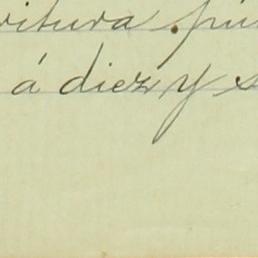 ritura pú
á diez y s